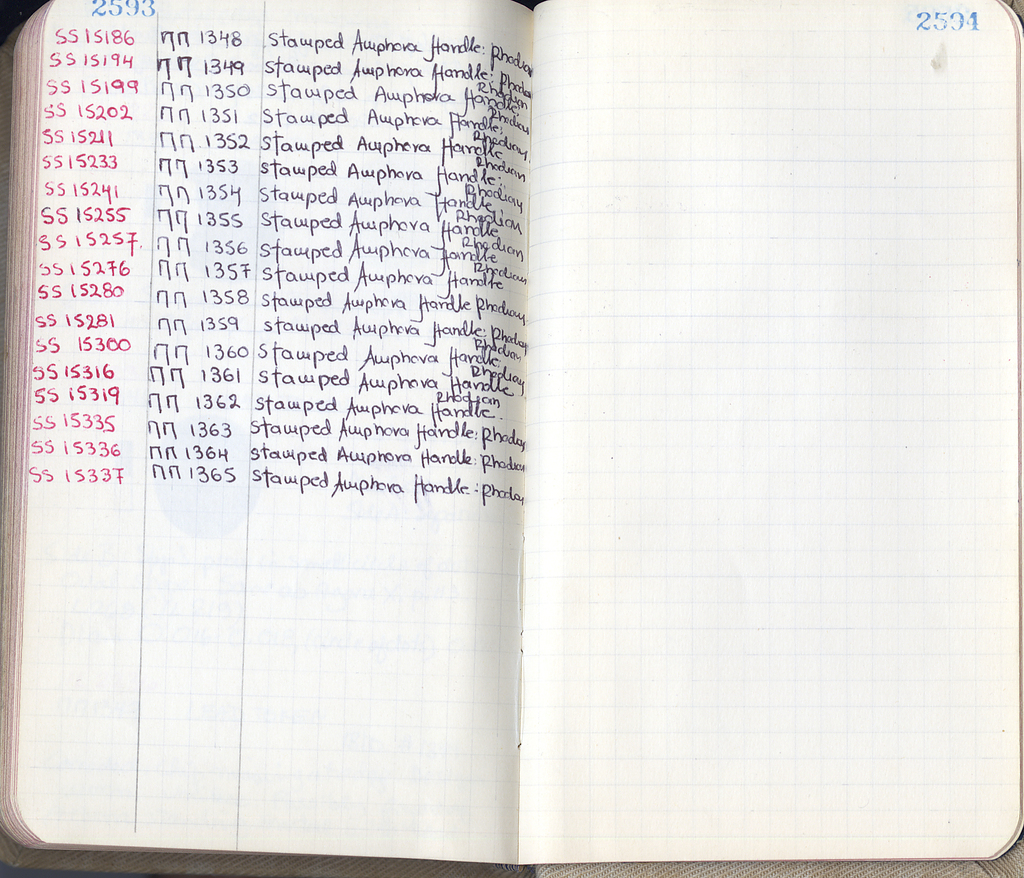 2593
SS 15186 ΠΠ 1348 Stamped Amphora Handle: Rhodian
SS 15194 ΠΠ 1349 Stamped Amphora Handle: Rhodian
SS 15199 ΠΠ 1350 Stamped Amphora Handle: Rhodian
SS 15202 ΠΠ 1351 Stamped Amphora Handle: Rhodian
SS 15211 ΠΠ 1352 Stamped Amphora Handle Rhodian
SS 15233 ΠΠ 1353 Stamped Amphora Handle: Rhodian
SS 15241 ΠΠ 1354 Stamped Amphora Handle Rhodian
SS 15255 ΠΠ 1355 Stamped Amphora Handle Rhodian
SS 15257. ΠΠ 1356 Stamped Amphora Handle Rhodian
SS 15276 ΠΠ 1357 Stamped Amphora Handle Rhodian
SS 15280 ΠΠ 1358 Stamped Amphora Handle Rhodian
SS 15281 ΠΠ 1359 Stamped Amphora Handle: Rhodian
SS 15300 ΠΠ 1360 Stamped Amphora Handle: Rhodian
SS 15316 ΠΠ 1361 Stamped Amphora Handle Rhodian
SS 15319 ΠΠ 1362 Stamped Amphora Handle. Rhodian
SS 15335 ΠΠ 1363 Stamped Amphora Handle: Rhodian
SS 15336 ΠΠ 1364 Stamped Amphora Handle: Rhodian
SS 15337 ΠΠ 1365 Stamped Amphora Handle: Rhodian
2594